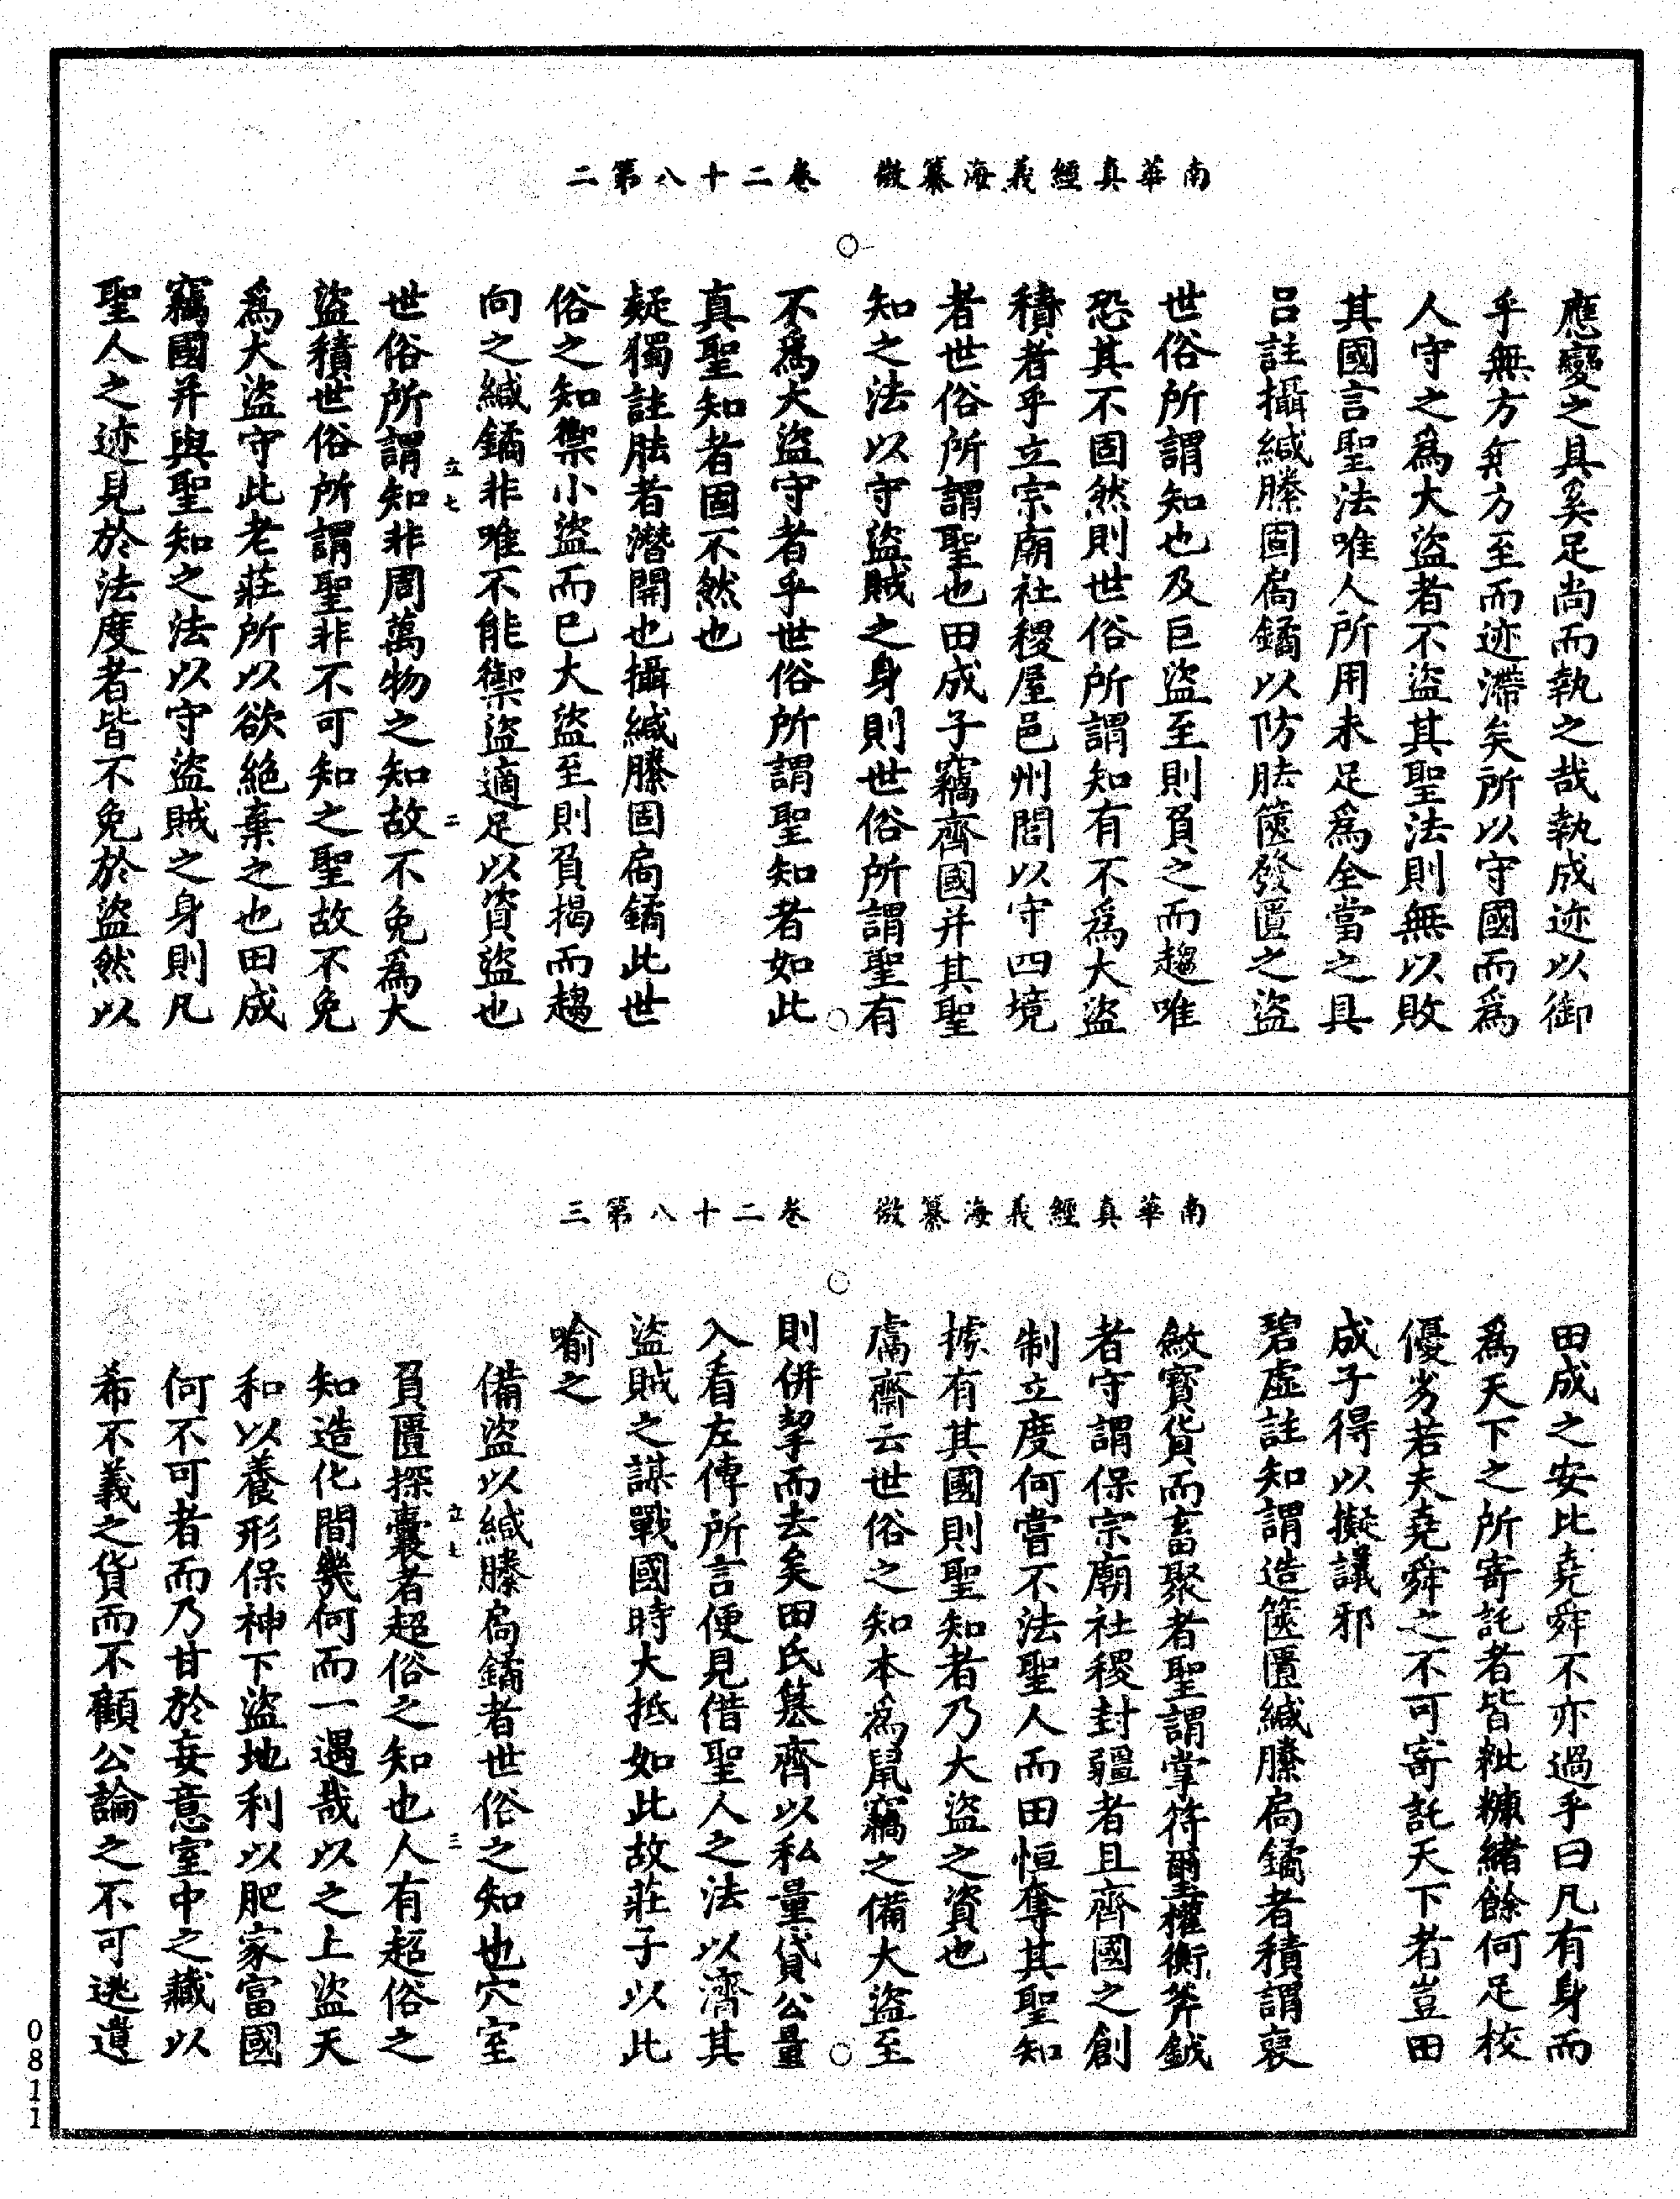 南華真經義海纂微 卷二十八第二
應變之具奚足尚而執之哉執成迹以御
乎無方無方至而迹滯矣所以守國而爲
人守之爲大盜者不盜其聖法則無以敗
其國言聖法唯人所用未足爲全當之具
呂註攝緘縢固扃鐍以防胠篋發匱之盜
世俗所謂知也及巨盜至則負之而趨唯
恐其不固然則世俗所謂知有不爲大盜
積者乎立宗廟社稷屋邑州閭以守四境
者世俗所謂聖也田成子竊齊國并其聖
知之法以守盜賊之身則世俗所謂聖有
不爲大盜守者乎世俗所謂聖知者如此
真聖知者固不然也
疑獨註胠者潛開也攝緘縢固扃鐍此世
俗之知禦小盜而已大盜至則負揭而趨
向之緘鐍非唯不能禦盜適足以資盜也
世俗所謂知非周萬物之知故不免爲大
盜積世俗所謂聖非不可知之聖故不免
爲大盜守此老莊所以欲絕棄之也田成
竊國并與聖知之法以守盜賊之身則凡
聖人之迹見於法度者皆不免於盜然以
立七
二
南華真經義海纂微 卷二十八第三
田成之安比堯舜不亦過乎曰凡有身而
爲天下之所寄託者皆粃糠緒餘何足校
優劣若夫堯舜之不可寄託天下者豈田
成子得以擬議邪
碧虛註知謂造篋匱緘縢扃鐍者積謂裒
斂寶貨而畜聚者聖謂掌符璽權衡斧鉞
者守謂保宗廟社稷封疆者且齊國之創
制立度何嘗不法聖人而田恒奪其聖知
據有其國則聖知者乃大盜之資也
鬳齋云世俗之知本爲鼠竊之備大盜至
則併挈而去矣田氏篡齊以私量貸公量
入看左傳所言便見借聖人之法以濟其
盜賊之謀戰國時大抵如此故莊子以此
喻之
備盜以緘縢扃鐍者世俗之知也穴室
負匱探囊者超俗之知也人有超俗之
知造化間幾何而一遇哉以之上盜天
和以養形保神下盜地利以肥家富國
何不可者而乃甘於妄意室中之藏以
希不義之貨而不顧公論之不可逃遺
立七
三
0811